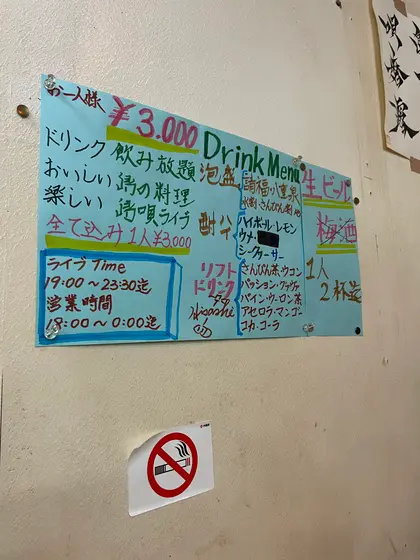 お一人様
¥3.000
ドリンク 飲み放題
おいしい 島の料理
楽しい 島唄ライブ
全て込み1人¥3,000
ライブTime
19:00〜23:30迄
営業時間
18:00〜0:00迄
Drink Menu
泡盛
請福・八重泉
水割・さんぴん茶割
酎ハイ
ハイボール・レモン
ウナ
シークヮーサー
ソフト
ドリンク
Hisashi
さんぴん茶・ウコン
パッション・グァヴァ
パイン・ウーロン茶
アセロラ・マンゴー
コカ・コーラ
生ビール
梅酒
1人
2杯迄
唄